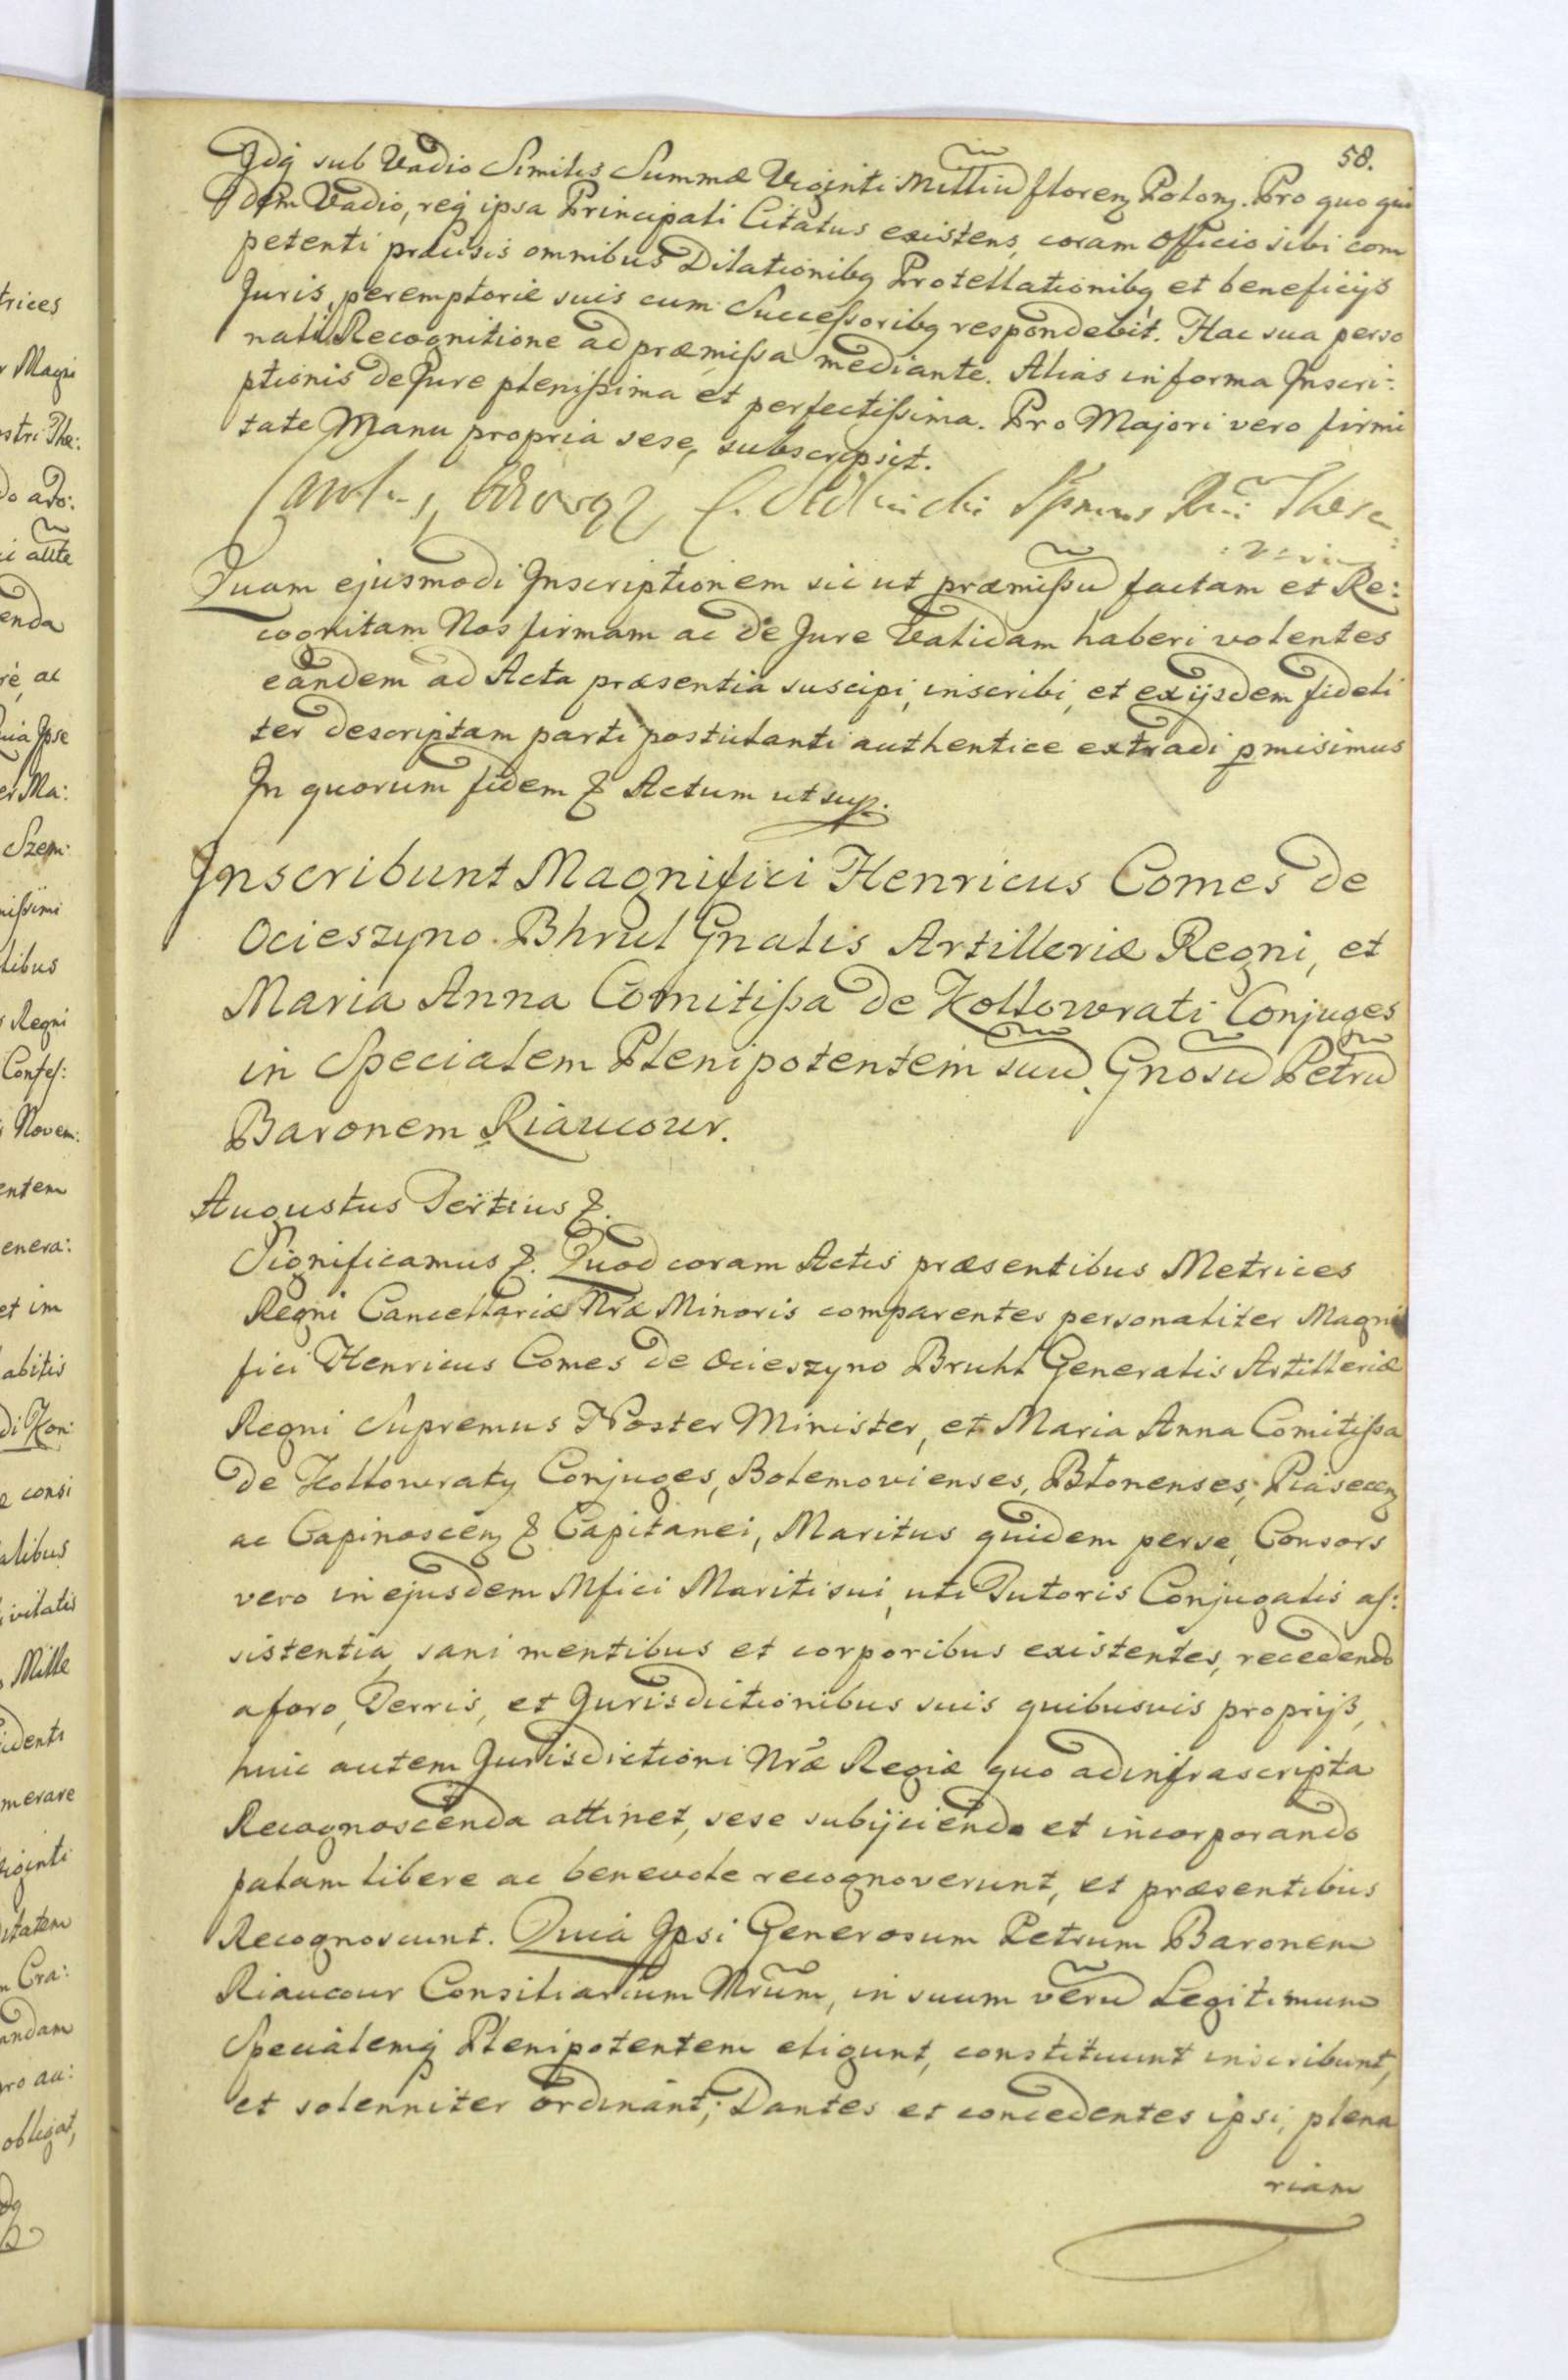 58.
Idq sub Vadio Similis Summæ Viginti Milliũ floren Polon. Pro quo qui
dem Vadio, req ipsa Principali Citatus existens, coram Officio sibi com
petenti præcisis omnibus Dilationibq Protellationibq et beneficijs
Juris, peremptorie suis cum Successoribq respondebit. Hac sua perso
nali Recognitione ad præmissa mediante. Alias in forma Inscri:
ptionis de Jure plenissima et perfectissima. Pro Majori vero firmi
tate Manu propria sese, subscripsit.
Quam ejusmodi Inscriptionem sic ut præmissũ factam et Re:
cognitam Nos firmam ac de Jure Validam haberi volentes
eandem ad Acta præsentia suscipi, inscribi, et ex ijsdem fideli
ter descriptam parti postulanti authentice extradi pmisimus
In quorum fidem & Actum ut sup.
Inscribunt Magnifici Henricus Comes de
Ocieszyno Bhrul Gnalis Artilleriæ Regni, et
Maria Anna Comitissa de Kollowrati Conjuges
in Specialem Plenipotentem suũ Gnosũ Petrũ
Baronem Riaucour.
Augustus Tertius &.
Significamus &. Quod coram Actis præsentibus Metrices
Regni Cancellariæ Nræ Minoris comparentes personaliter Magni
fici Henricus Comes de Ocieszyno Bruhl Generalis Artilleriæ
Regni Supremus Noster Minister, et Maria Anna Comitissa
de Kollowraty Conjuges, Bolemovienses, Blonenses, Piasecen
ac Capinoscen & Capitanei, Maritus quidem per se, Consors
vero in ejusdem Mfici Mariti sui, uti Tutoris Conjugalis as:
sistentia, sani mentibus et corporibus existentes, recedendo
a foro, Terris, et Jurisdictionibus suis quibusvis proprijs,
huic autem Jurisdictioni Nræ Regiæ quo ad infrascripta
Recognoscenda attinet, sese subijciendo et incorporando
palam libere ac benevole recognoverunt, et præsentibus
Recognoscunt. Quia Ipsi Generosum Petrum Baronem
Riaucour Consiliarium Nrum, in suum verũ Legitimum
Specialemq Plenipotentem eligunt, constituunt inscribunt,
et solenniter ordinant; Dantes et concedentes ipsi, plena
riam